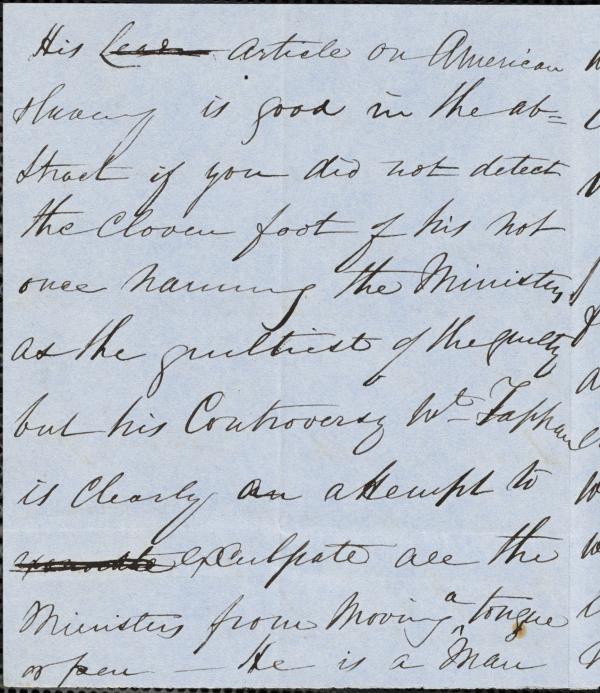 His article on American
slavery is good in the ab=
stract if you did not detect
the cloven foot of his not
once naming the Ministers
as the guiltiest of the guilty
but his Controversy Wt Tappan
is clearly an attempt to
exculpate all the
Ministers from moving a tongue
or pen - He is a Man